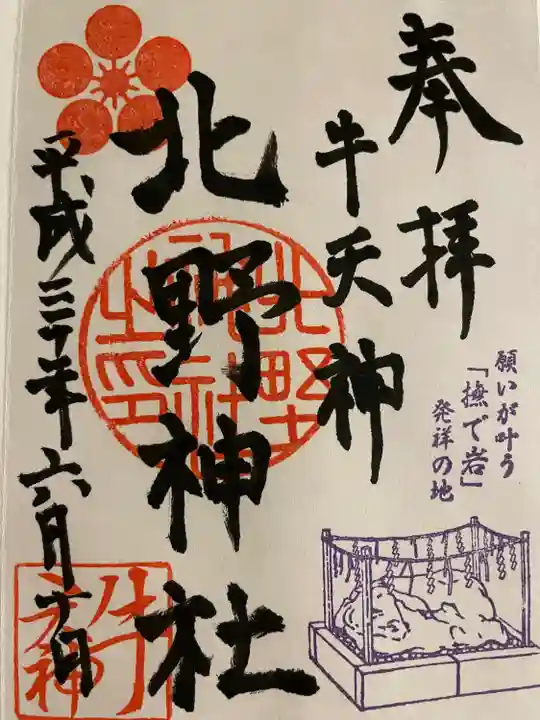 奉拝
牛天神
北野神社
平成三十年六月十日
願いが叶う
「撫で岩」
発祥の地
北野
神社
之印
牛天神